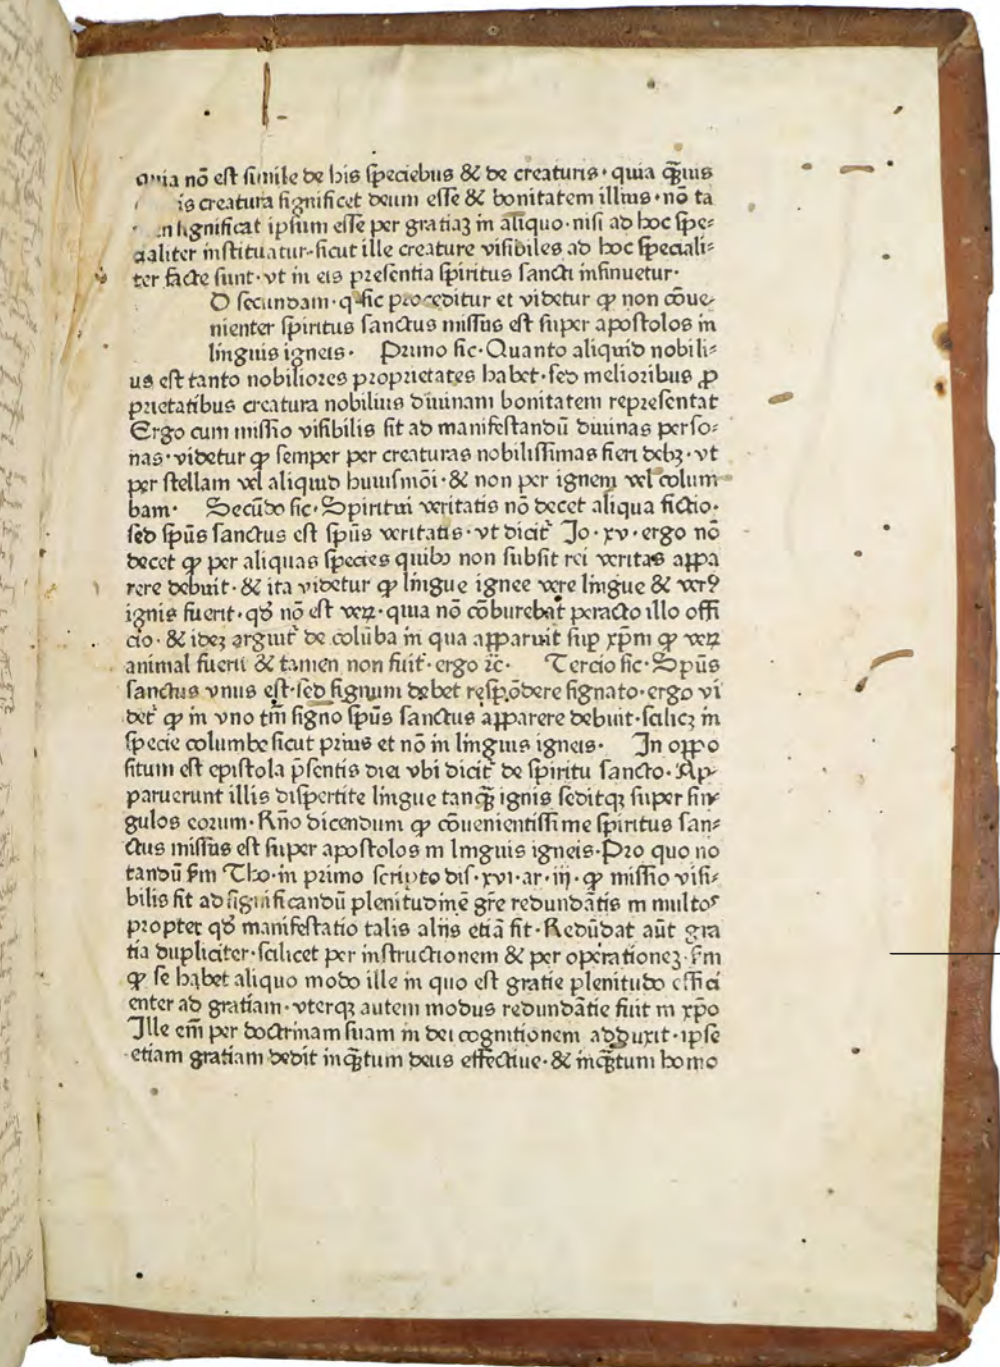 quia nō est simile de his speciebus & de creaturis · quia q̄uis
is creatura significet deum esse & bonitatem illius · nō ta
significat ipsum esse per gratiaʒ in aliquo · nisi ad hoc spe⸗
cialiter instituatur · sicut ille creature visibiles ad hoc speciali⸗
ter facte sunt · vt in eis presentia spiritus sancti insinuetur ·
D secundam · q̄ sic proceditur et videtur ꝙ non cōue⸗
nienter spiritus sanctus missus est super apostolos in
linguis igneis · Primo sic · Quanto aliquid nobili⸗
us est tanto nobiliores proprietates habet · sed melioribus ꝓ
prietatibus creatura nobilius diuinam bonitatem representat
Ergo cum missio visibilis sit ad manifestandū diuinas perso⸗
nas · videtur ꝙ semper per creaturas nobilissimas fieri debꝫ · vt
per stellam vel aliquid huiusmōi · & non per ignem vel colum
bam · Secūdo sic · Spiritui veritatis nō decet aliqua fictio ·
sed spūs sanctus est spūs veritatis · vt dicit᷑ Jo · xv · ergo nō
decet ꝙ per aliquas species quibꝫ non subsit rei veritas appa
rere debuit · & ita videtur ꝙ lingue ignee vere lingue & verꝰ
ignis fuerit · qḋ nō est veꝝ · quia nō cōburebat peracto illo offi
cio · & ideʒ arguit᷑ de colūba in qua apparuit suꝑ xp̄m ꝙ veꝝ
animal fuerit & tamen non fuit · ergo ⁊c · Tercio sic · Spūs
sanctus vnus est · sed signum debet respōdere signato · ergo vi
det᷑ ꝙ in vno tm̄ signo spūs sanctus apparere debuit · scilicʒ in
specie columbe sicut prius et nō in linguis igneis · In oppo
situm est epistola p̄sentis diei vbi dicit᷑ de spiritu sancto · Ap⸗
paruerunt illis dispertite lingue tanq̄ ignis seditqꝫ super sin⸗
gulos eorum · Rn̄o dicendum ꝙ cōuenientissime spiritus san⸗
ctus missus est super apostolos in linguis igneis · Pro quo no
tandū ẜm Tho · in primo scripto dis · xvi · ar · iij · ꝙ missio visi⸗
bilis fit ad significandū plenitudinē gr̄e redundātis in multos
propter qḋ manifestatio talis aliis etiā fit · Redūdat aūt gra
tia dupliciter · scilicet per instructionem & per operationeʒ · ẜm
ꝙ se habet aliquo modo ille in quo est gratie plenitudo effici
enter ad gratiam · vterqꝫ autem modus redundātie fuit in xp̄o
Ille em̄ per doctrinam suam in dei cognitionem adduxit · ipse
etiam gratiam dedit inq̄tum deus effectiue · & inq̄tum homo